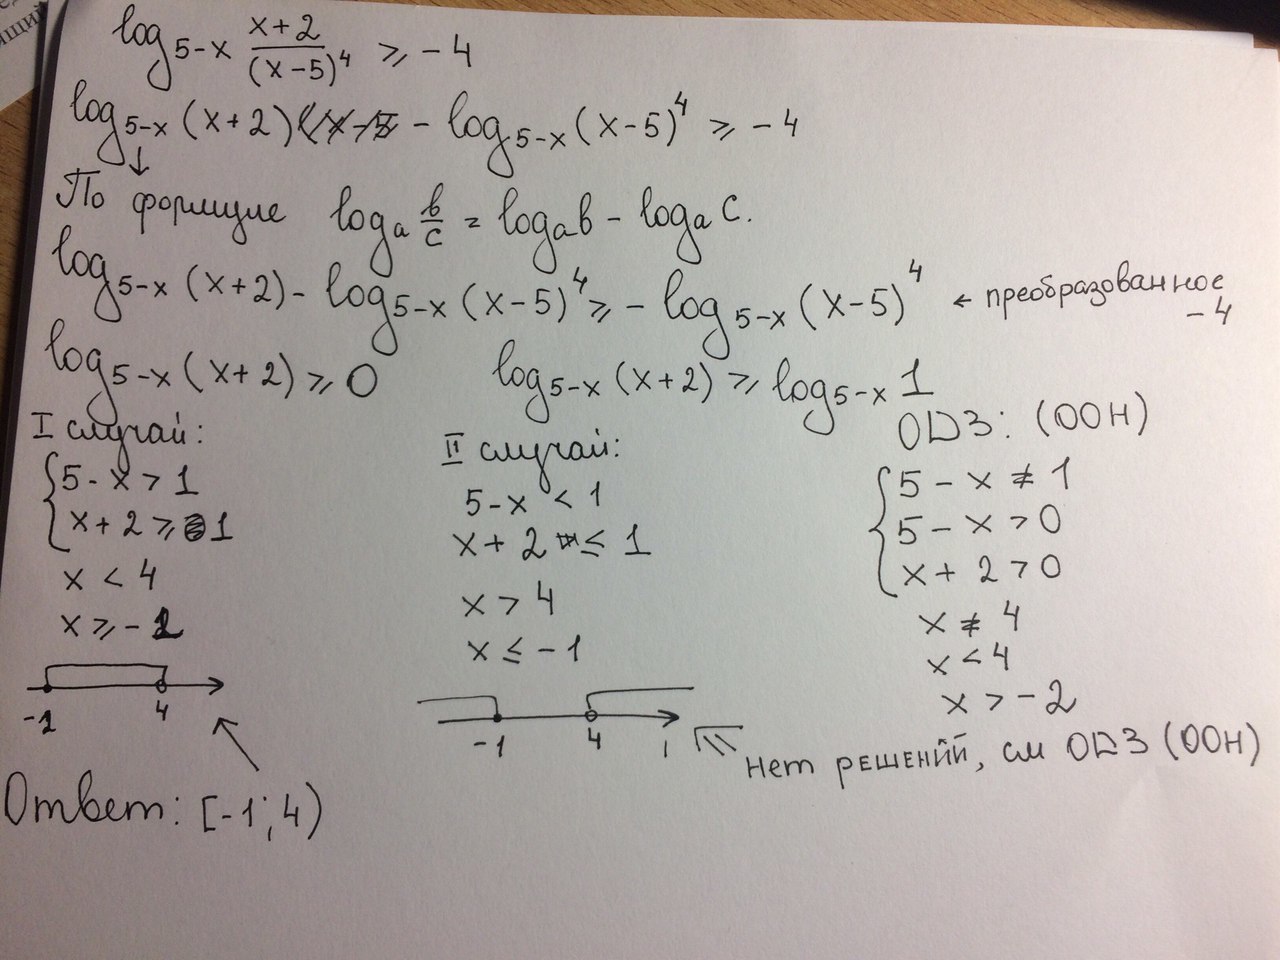 log₅₋ₓ (x+2)/(x-5)⁴ ⩾ -4
log₅₋ₓ (x+2) - log₅₋ₓ (x-5)⁴ ⩾ -4
↓
По формуле logₐ b/c = logₐb - logₐ c.
log₅₋ₓ (x+2) - log₅₋ₓ (x-5)⁴ ⩾ - log₅₋ₓ (x-5)⁴ ← преобразованное
-4
log₅₋ₓ (x+2) ⩾ 0
log₅₋ₓ (x+2) ⩾ log₅₋ₓ 1
I случай:
5-x > 1
x+2 ⩾ 1
x < 4
x ⩾ -1
-1 4
Ответ: [-1; 4)
II случай:
5-x < 1
x+2 ≤ 1
x > 4
x ≤ -1
-1 4
нет решений, см ОДЗ (ООН)
ОДЗ: (ООН)
5 - x ≠ 1
5 - x > 0
x + 2 > 0
x ≠ 4
x < 4
x > -2